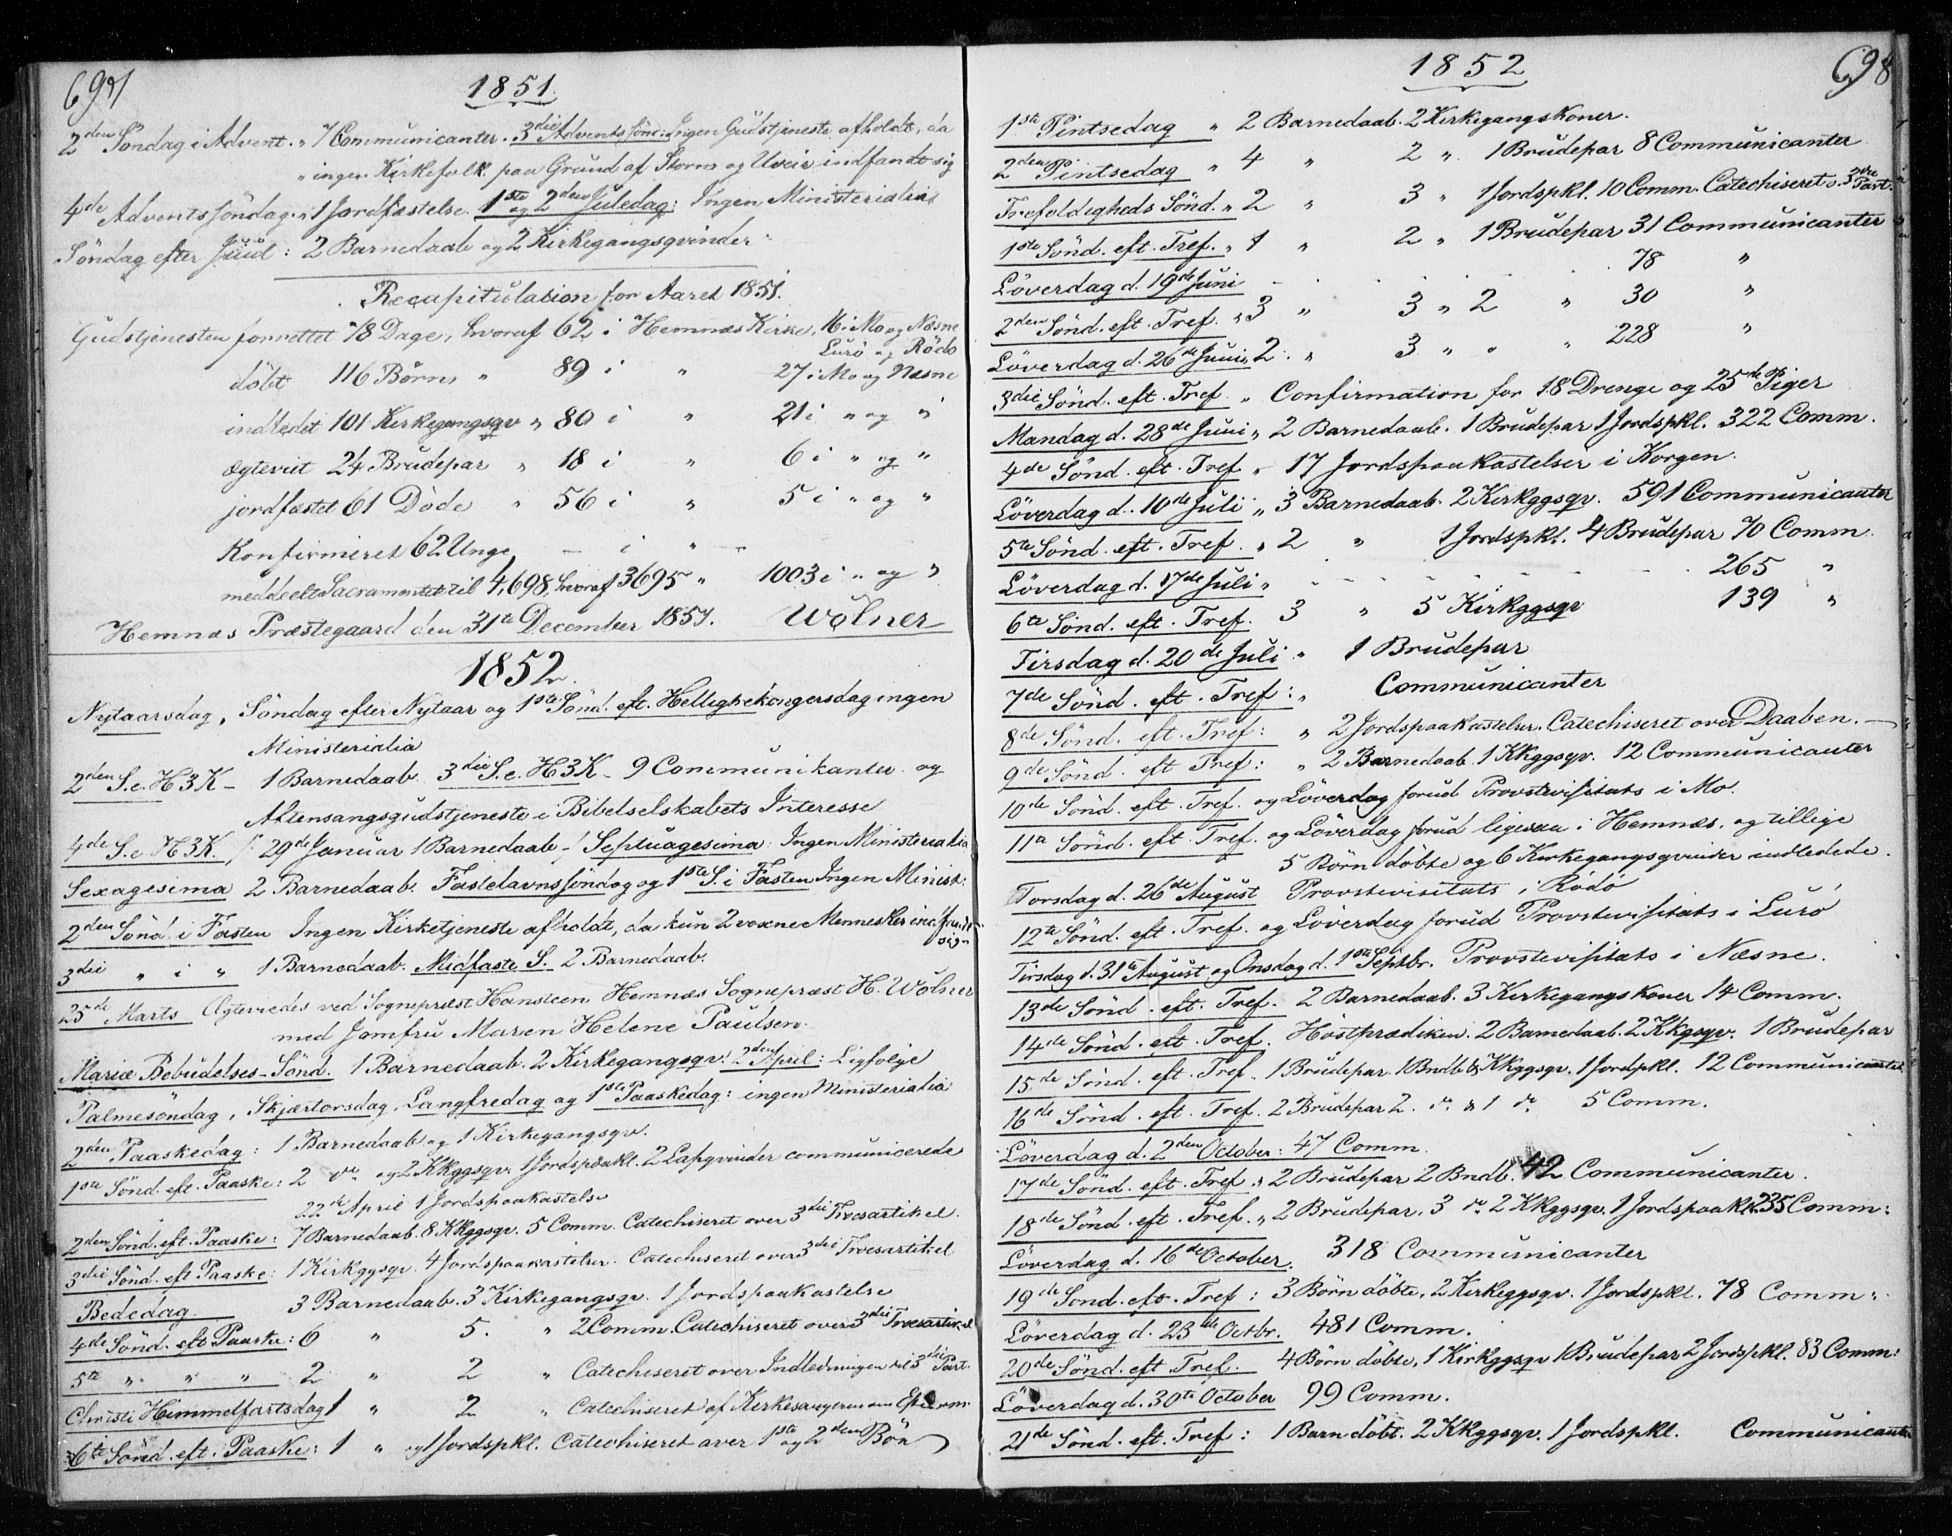 697
1851.
2den Søndag i Advent. " 7 Communicanter. 3die Advents Sønd: Ingen Gudstjeneste afholdt, da
" ingen Kirkefolk paa Grund af Storm og Uveir indfandt sig
4de Adventssøndag. " 1 Jordfæstelse. 1ste og 2den Juledag: Ingen Ministerialia
Søndag efter Juul: 2 Barnedaab og 2 Kirkegangsqvinder.
Recapitulation for Aaret 1851.
Gudstjenesten forrettet 78 Dage, hvoraf 62 i Hemnæs Kirke, 16 i Mo og Næsne
Lurø og Rødø
døbt 116 Børn " 89 i " 27 i Mo og Næsne
indledet 101 Kirkegangsqv " 80 i " 21 i " og "
ægteviet 24 Brudepar " 18 i " 6 i " og "
jordfæstet 61 Døde " 56 i " 5 i " og "
Konfirmeret 62 Unge — i " —
meddeelt Sacramentet til 4,698, hvoraf 3695 " 1003 i " og "
Hemnæs Præstegaard den 31te December 1851. Wolner
1852.
Nytaarsdag, Søndag efter Nytaar og 1ste Sønd. eft. Hellighekongersdag ingen
Ministerialia
2den S. e. H3K - 1 Barnedaab. 3die S. e. H3K - 9 Communikanter og
Aftensangsgudstjeneste i Bibelselskabets Interesse
4de S. e. H3K. /: 29de Januar 1 Barnedaab -/ Septuagesima: Ingen Ministerialia
Sexagesima 2 Barnedaab. Fastelavnssøndag og 1ste S. i Fasten Ingen Minist:
2den Sønd. i Fasten Ingen Kirketjeneste afholdt, da kun 2 voxne Mennesker indfandt
sig
3die " i " 1 Barnedaab. Midfaste S. 2 Barnedaab.
25de Marts Ægteviedes ved Sognepræst Hansteen Hemnæs Sognepræst H. Wolner
med Jomfru Maren Helene Paulsen.
Mariæ Bebudelses-Sønd. 1 Barnedaab. 2 Kirkegangsqv: 2den April: Ligfølge
Palmesøndag, Skjærtorsdag, Langfredag og 1ste Paaskedag: ingen Ministerialia
2den Paaskedag: 1 Barnedaab og 1 Kirkegangsqv.
1ste Sønd. eft. Paaske: 2 do og 2 Kkggsqv. 1 Jordspaakl. 2 Lapqvinder communicerede
22de April 1 Jordspaakastelse
2den Sønd. eft. Paaske: 7 Barnedaab. 8 Kkggsqv. 5 Comm. Catechiseret over 3die Troesartikel.
3die Sønd. eft Paaske: 1 Kirkggsqv. 4 Jordspaakastelser. Catechiseret over 3die Troesartikel
Bededag. 3 Barnedaab. 3 Kirkegangsqv. 1 Jordspaakastelse
4de Sønd. eft Paaske: 6 " 5. " 2 Comm. Catechiseret over 3die Troesartikel
5te " " " 2 " 2 " Catechiseret over Indledningen til 3die Part.
Christi Himmelfartsdag 1 " 2 " Catechiseret af Kirkesangeren om Efterm
6te Sønd. eft. Paaske: 1 " og 1 Jordspkl. Catechiseret over 1ste og 2den Bøn
698
1852
1ste Pintsedag " 2 Barnedaab. 2 Kirkegangskoner.
2den Pintsedag " 4 " 2 " 1 Brudepar 8 Communicanter
Trefoldigheds Sønd. " 2 " 3 " 1 Jordspkl. 10 Comm. Catechiseret o. 3die Part.
1ste Sønd. eft. Tref. " 1 " 2 " 1 Brudepar 31 Communicanter
Løverdag d. 19de Juni - - - - - 78 "
2den Sønd. eft. Tref. " 3 " 3 " 2 " 30 "
Løverdag d. 26de Juni " 2 " 3 " " " 228 "
3die Sønd. eft. Tref. " Confirmation for 18 Drenge og 25de Piger
Mandag d. 28de Juni " 2 Barnedaab. 1 Brudepar 1 Jordspkl. 322 Comm.
4de Sønd. eft. Tref " 17 Jordspaakastelser i Korgen.
Løverdag d. 10de Juli " 3 Barnedaab. 2 Kirkggsqv. 591 Communicanter
5te Sønd. eft. Tref. " 2 " 1 Jordspkl. 4 Brudepar 70 Comm.
Løverdag d. 17de Juli " - - - - - 265 "
6te Sønd. eft. Tref. 3 " 5 Kirkggsqv 139 "
Tirsdag d. 20de Juli " 1 Brudepar
7de Sønd. eft. Tref: " Communicanter
8de Sønd. eft. Tref: " 2 Jordspaakastelser. Catechiseret over Daaben. —
9de Sønd. eft Tref: " 2 Barnedaab 1 Kkggsqv. 12 Communicanter
10de Sønd. eft. Tref. og Løverdag forud Provstevisitats i Mo.
11te Sønd. eft. Tref. og Løverdag forud ligesaa i Hemnæs, og tillige
5 Børn døbte og 6 Kirkegangsqvinder indledede.
Torsdag d. 26de August Provstevisitats i Rødø
12te Sønd. eft. Tref. og Løverdag forud Provstevisitats i Lurø
Tirsdag d. 31te August og Onsdag d. 1ste Septbr. Provstevisitats i Næsne.
13de Sønd. eft. Tref. 2 Barnedaab. 3 Kirkegangskoner 14 Comm.
14de Sønd. eft. Tref. Høstprædiken. 2 Barnedaab. 2 Kkgsqv. 1 Brudepar
15de Sønd. eft. Tref. 1 Brudepar. 1 Bndb & Kkggsqv. 1 Jordpkl. 12 Communicanter
16de Sønd. eft. Tref. 2 Brudepar 2. do & 1 do 5 Comm.
Løverdag d. 2den October: 47 Comm.
17de Sønd. eft. Tref. " 2 Brudepar 2 Bndb. 42 Communicanter.
18de Sønd. eft. Tref. " 2 Brudepar. 3 do 2 Kkggsqv. 1 Jordspaakl. 235 Comm:
Løverdag d. 16de October. 318 Communicanter
19de Sønd. eft. Tref: 3 Børn døbte, 2 Kirkeggsqv. 1 Jordspkl. 78 Comm:
Løverdag d. 23de Octbr. 481 Comm.
20de Sønd. eft Tref. 4 Børn døbte, 1 Kirkggsqv 1 Brudepar 2 Jordspkl. 83 Comm:
Løverdag d. 30te October 99 Comm.
21de Sønd. eft. Tref: 1 Barn døbt. 2 Kkggsqv. 1 Jordspkl. Communicanter